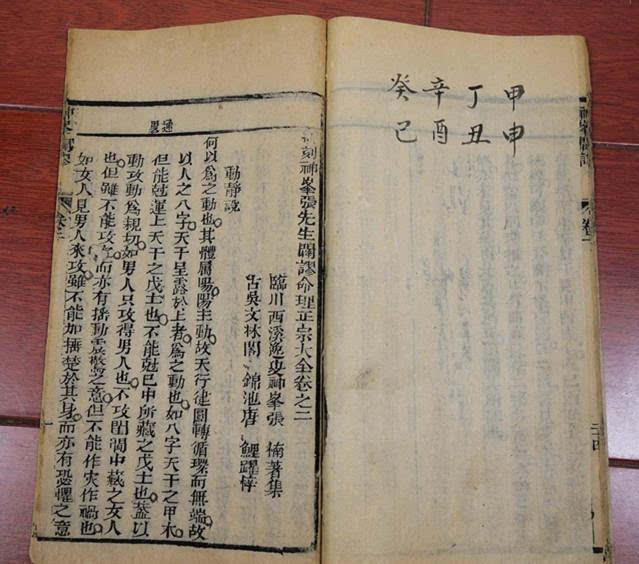 甲申
丁丑
辛酉
癸巳
刻神峯張先生闢謬命理正宗大全卷之二
臨川西溪逸叟神峯張 楠著集
古吳文林閣 錦池唐 鯉躍梓
動靜說
何以爲之動也其體屬陽陽主動故天行健圓轉循環而無端故
以人之八字天干呈露於上者爲之動也如八字天干之甲木
但能尅運上天干之戊土也不能尅巳中所藏之戊土也蓋以
動攻動爲親切如男人只攻得男人也不攻閨閫中藏之女人
也但雖不能攻之而亦有搖動震驚之意但不能作灾作禍也
如女人見男人來攻雖不能加捶楚於其身而亦有恐懼之意